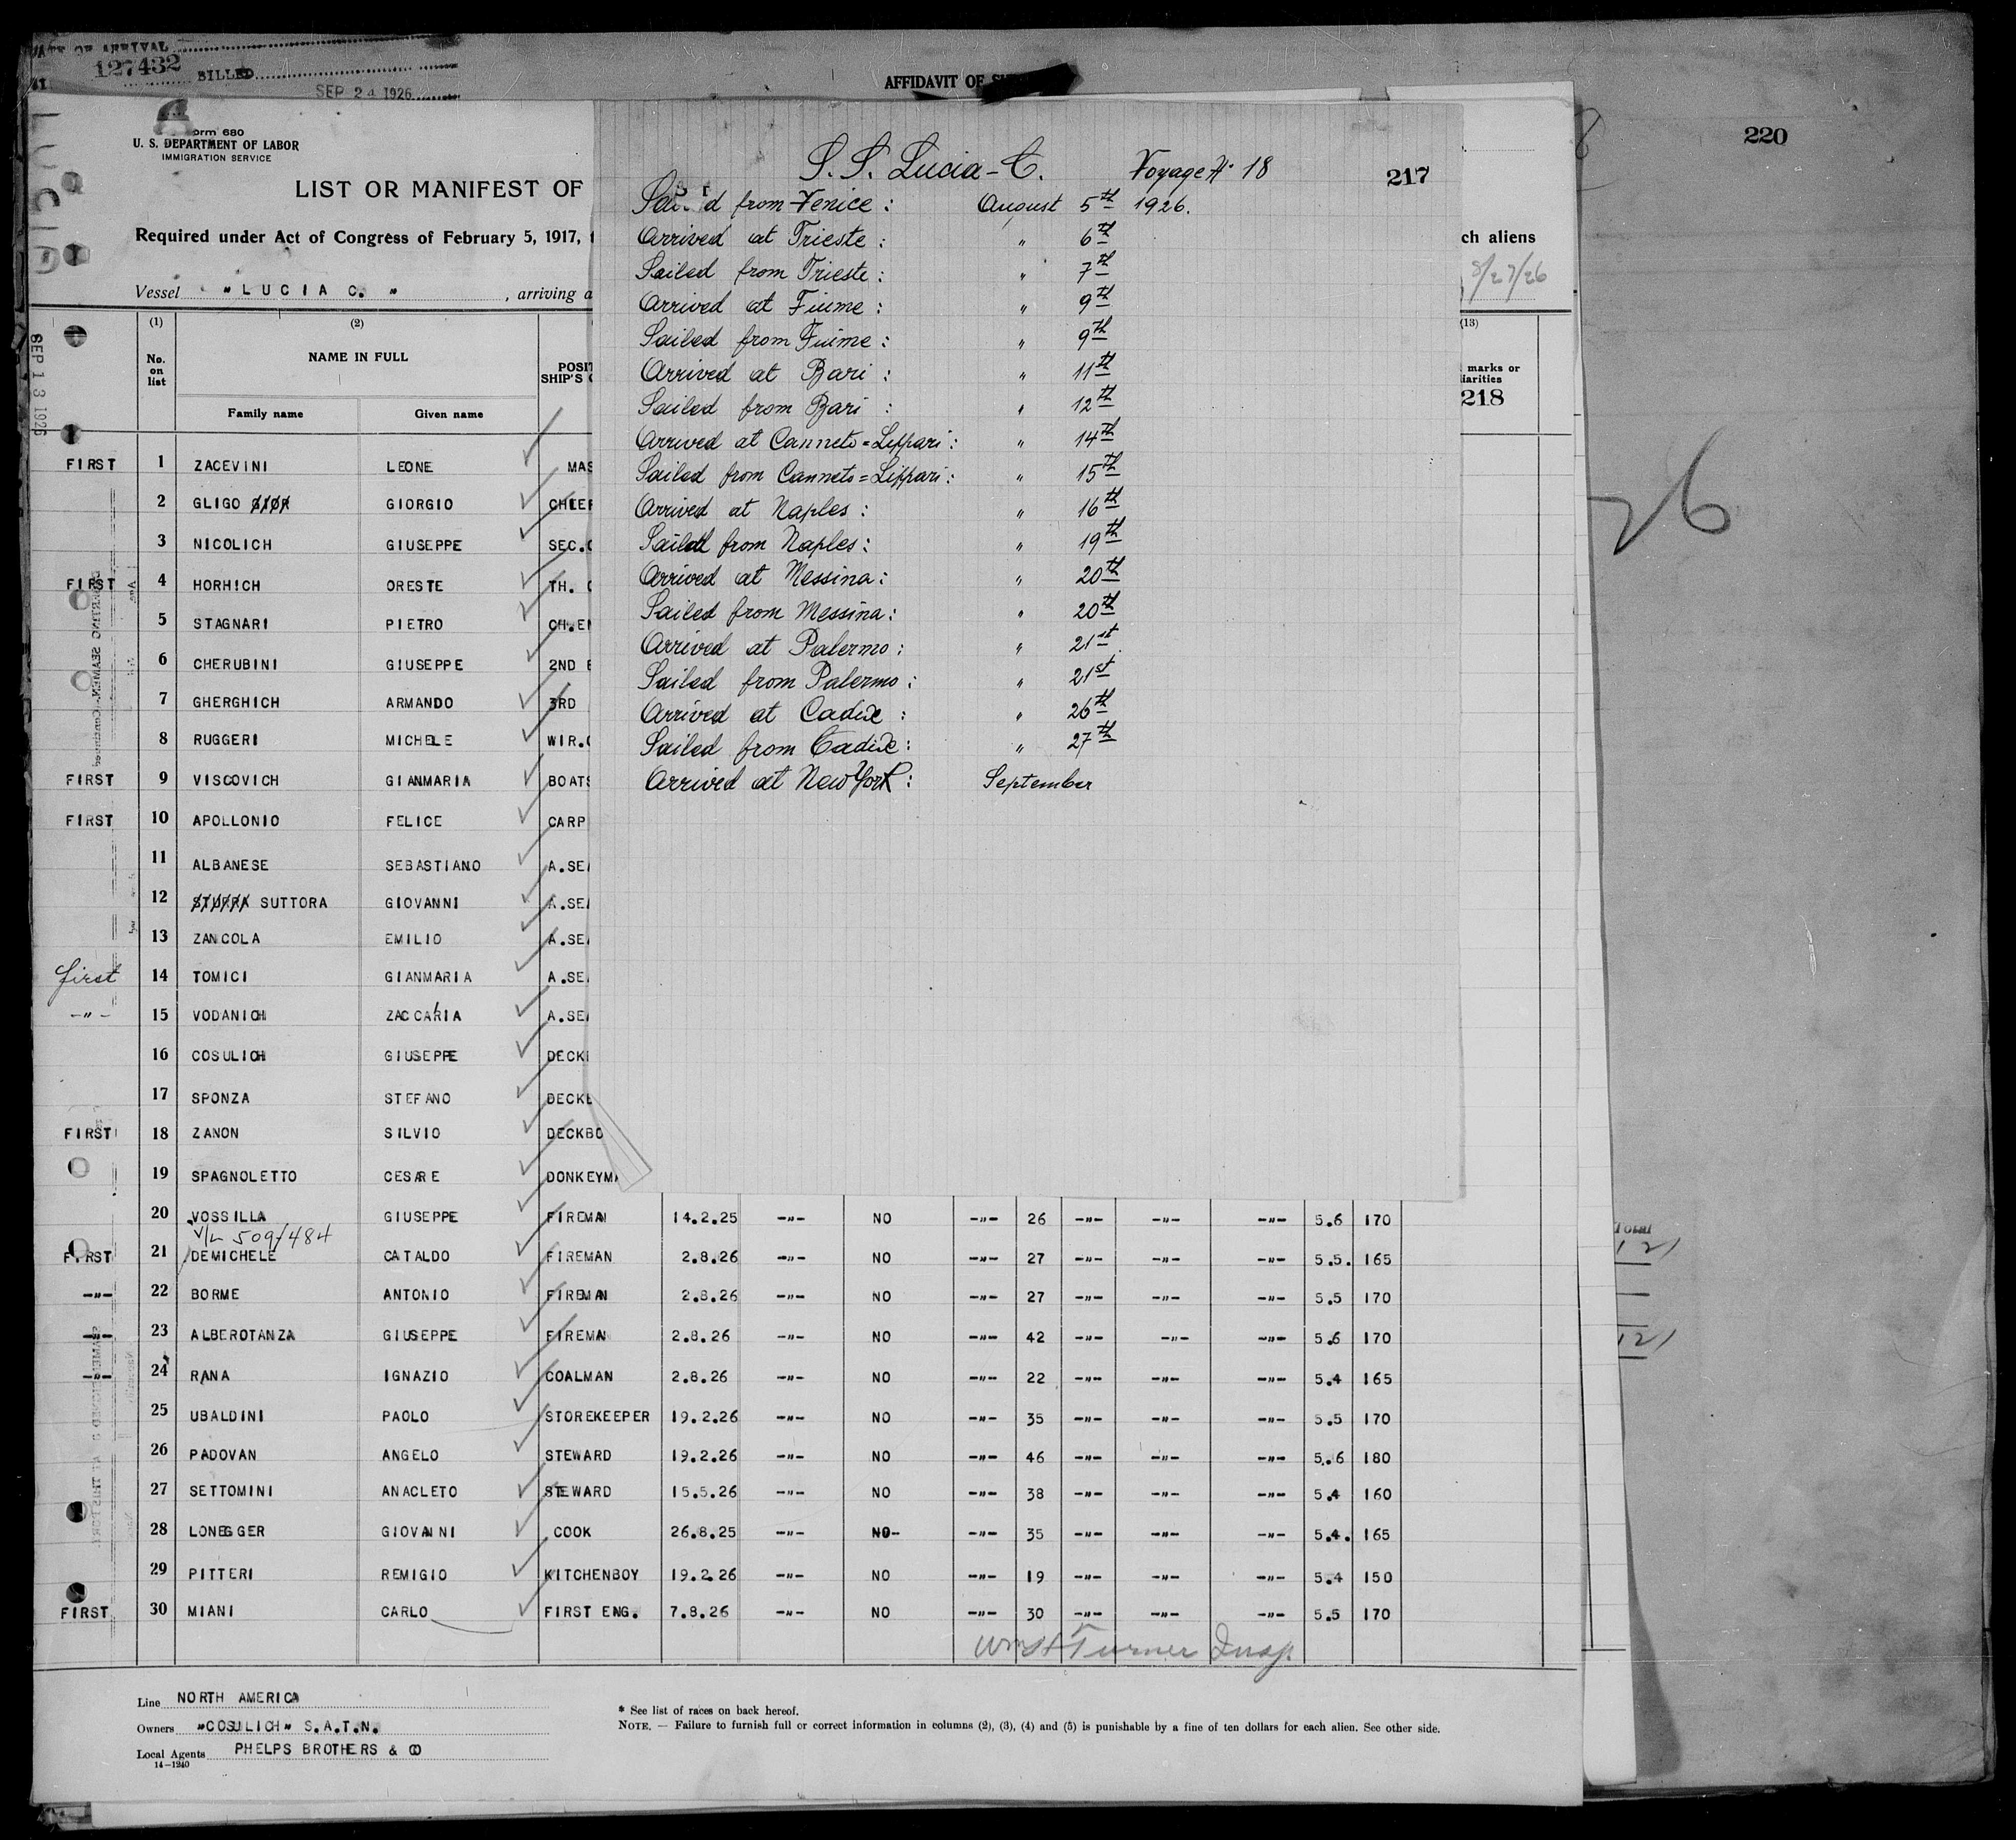 DATE OF ARRIVAL
127432 BILLED
SEP 24 1926
AFFIDAVIT OF
220
Form 680
U. S. DEPARTMENT OF LABOR
IMMIGRATION SERVICE
LIST OR MANIFEST OF
Required under Act of Congress of February 5, 1917,
ch aliens
Vessel "LUCIA C.", arriving a
8/27/26
SEP 13 1926
S. S. Lucia-C. Voyage No 18 217
Sailed from Venice: August 5th 1926.
Arrived at Trieste: " 6th
Sailed from Trieste: " 7th
Arrived at Fiume: " 9th
Sailed from Fiume: " 9th
Arrived at Bari: " 11th
Sailed from Bari: " 12th
Arrived at Canneto=Lippari: " 14th
Sailed from Canneto=Lippari: " 15th
Arrived at Naples: " 16th
Saild from Naples: " 19th
Arrived at Messina: " 20th
Sailed from Messina: " 20th
Arrived at Palermo: " 21st
Sailed from Palermo: " 21st
Arrived at Cadix: " 26th
Sailed from Cadix: " 27th
Arrived at New York: September
(1) (2) (13)
No. on list
NAME IN FULL
POSIT
SHIP'S C
marks or
iarities
218
Family name Given name
26
FIRST 1 ZACEVINI LEONE MAS
2 GLIGO GIORGIO CHIEF
3 NICOLICH GIUSEPPE SEC.O
FIRST 4 HORHICH ORESTE TH. O
5 STAGNARI PIETRO CH.EN
6 CHERUBINI GIUSEPPE 2ND E
7 GHERGHICH ARMANDO 3RD
8 RUGGERI MICHELE WIR.O
FIRST 9 VISCOVICH GIANMARIA BOATS
FIRST 10 APOLLONIO FELICE CARP
11 ALBANESE SEBASTIANO A.SEA
12 SUTTORA GIOVANNI A.SEA
13 ZANCOLA EMILIO A.SEA
first 14 TOMICI GIANMARIA A.SEA
-"- 15 VODANICH ZACCARIA A.SEA
16 COSULICH GIUSEPPE DECK
17 SPONZA STEFANO DECKB
FIRST 18 ZANON SILVIO DECKBO
19 SPAGNOLETTO CESARE DONKEYMA
20 VOSSILLA GIUSEPPE FIREMAN 14.2.25 -"- NO -"- 26 -"- -"- -"- 5.6 170
V/L 509/484
FIRST 21 DEMICHELE CATALDO FIREMAN 2.8.26 -"- NO -"- 27 -"- -"- -"- 5.5. 165
-"- 22 BORME ANTONIO FIREMAN 2.8.26 -"- NO -"- 27 -"- -"- -"- 5.5 170
-"- 23 ALBEROTANZA GIUSEPPE FIREMAN 2.8.26 -"- NO -"- 42 -"- -"- -"- 5.6 170
-"- 24 RANA IGNAZIO COALMAN 2.8.26 -"- NO -"- 22 -"- -"- -"- 5.4 165
25 UBALDINI PAOLO STOREKEEPER 19.2.26 -"- NO -"- 35 -"- -"- -"- 5.5 170
26 PADOVAN ANGELO STEWARD 19.2.26 -"- NO -"- 46 -"- -"- -"- 5.6 180
27 SETTOMINI ANACLETO STEWARD 15.5.26 -"- NO -"- 38 -"- -"- -"- 5.4 160
28 LONEGGER GIOVANNI COOK 26.8.25 -"- NO- -"- 35 -"- -"- -"- 5.4. 165
29 PITTERI REMIGIO KITCHENBOY 19.2.26 -"- NO -"- 19 -"- -"- -"- 5.4 150
FIRST 30 MIANI CARLO FIRST ENG. 7.8.26 -"- NO -"- 30 -"- -"- -"- 5.5 170
Turner Insp.
Total
121
121
Line NORTH AMERICA
Owners "COSULICH" S.A.T.N.
Local Agents PHELPS BROTHERS & CO
14-1240
* See list of races on back hereof.
NOTE. — Failure to furnish full or correct information in columns (2), (3), (4) and (5) is punishable by a fine of ten dollars for each alien. See other side.